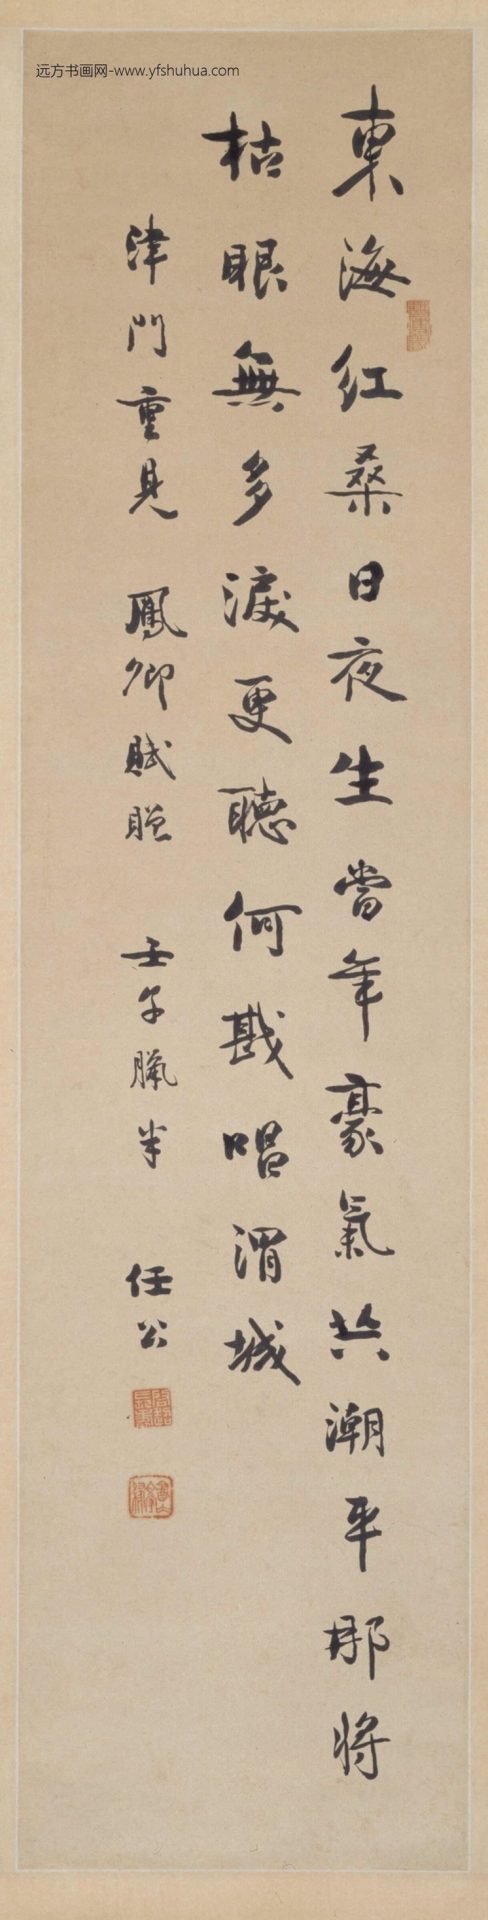 远方书画网-www.yfshuhua.com
東海紅桑日夜生當年豪氣共潮平那将
枯眼無多淚更聽何戡唱渭城
津門重見 鳳卿賦贈 壬子臘半 任公